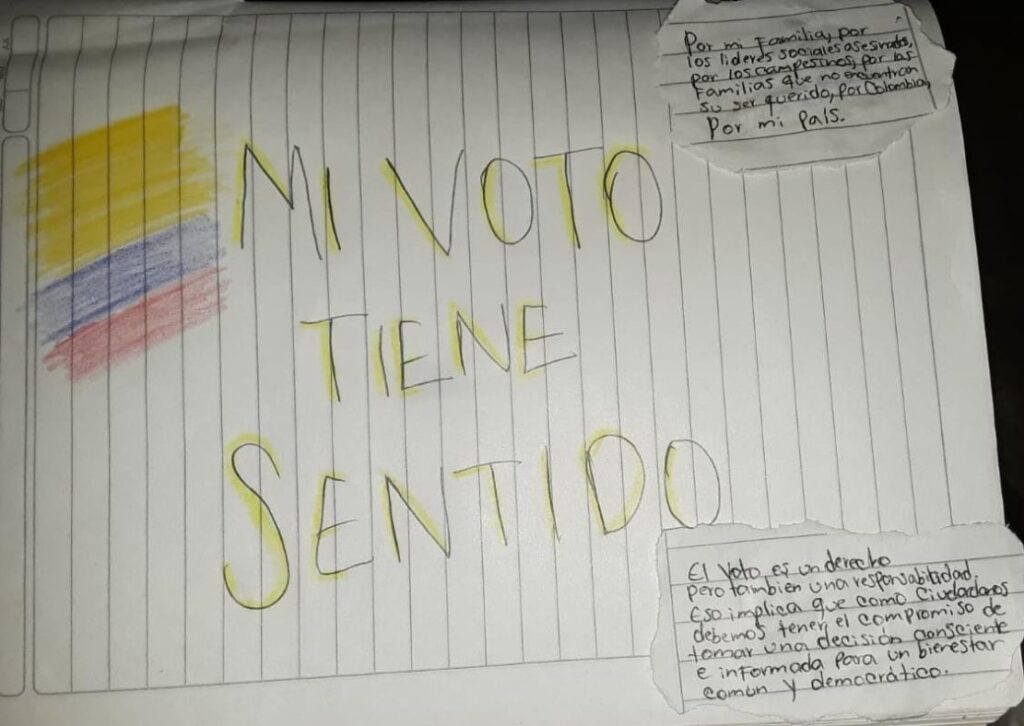 Por mi Familia, por
los lideres sociales asesinados,
por los campesinos, por las
Familias que no encuentran
su ser querido, por Colombia,
Por mi país.
MI VOTO
TIENE
SENTIDO
El Voto es un derecho
pero también una responsabilidad.
Eso implica que como Ciudadanos
debemos tener el compromiso de
tomar una decisión consciente
e informada para un bienestar
común y democrático.